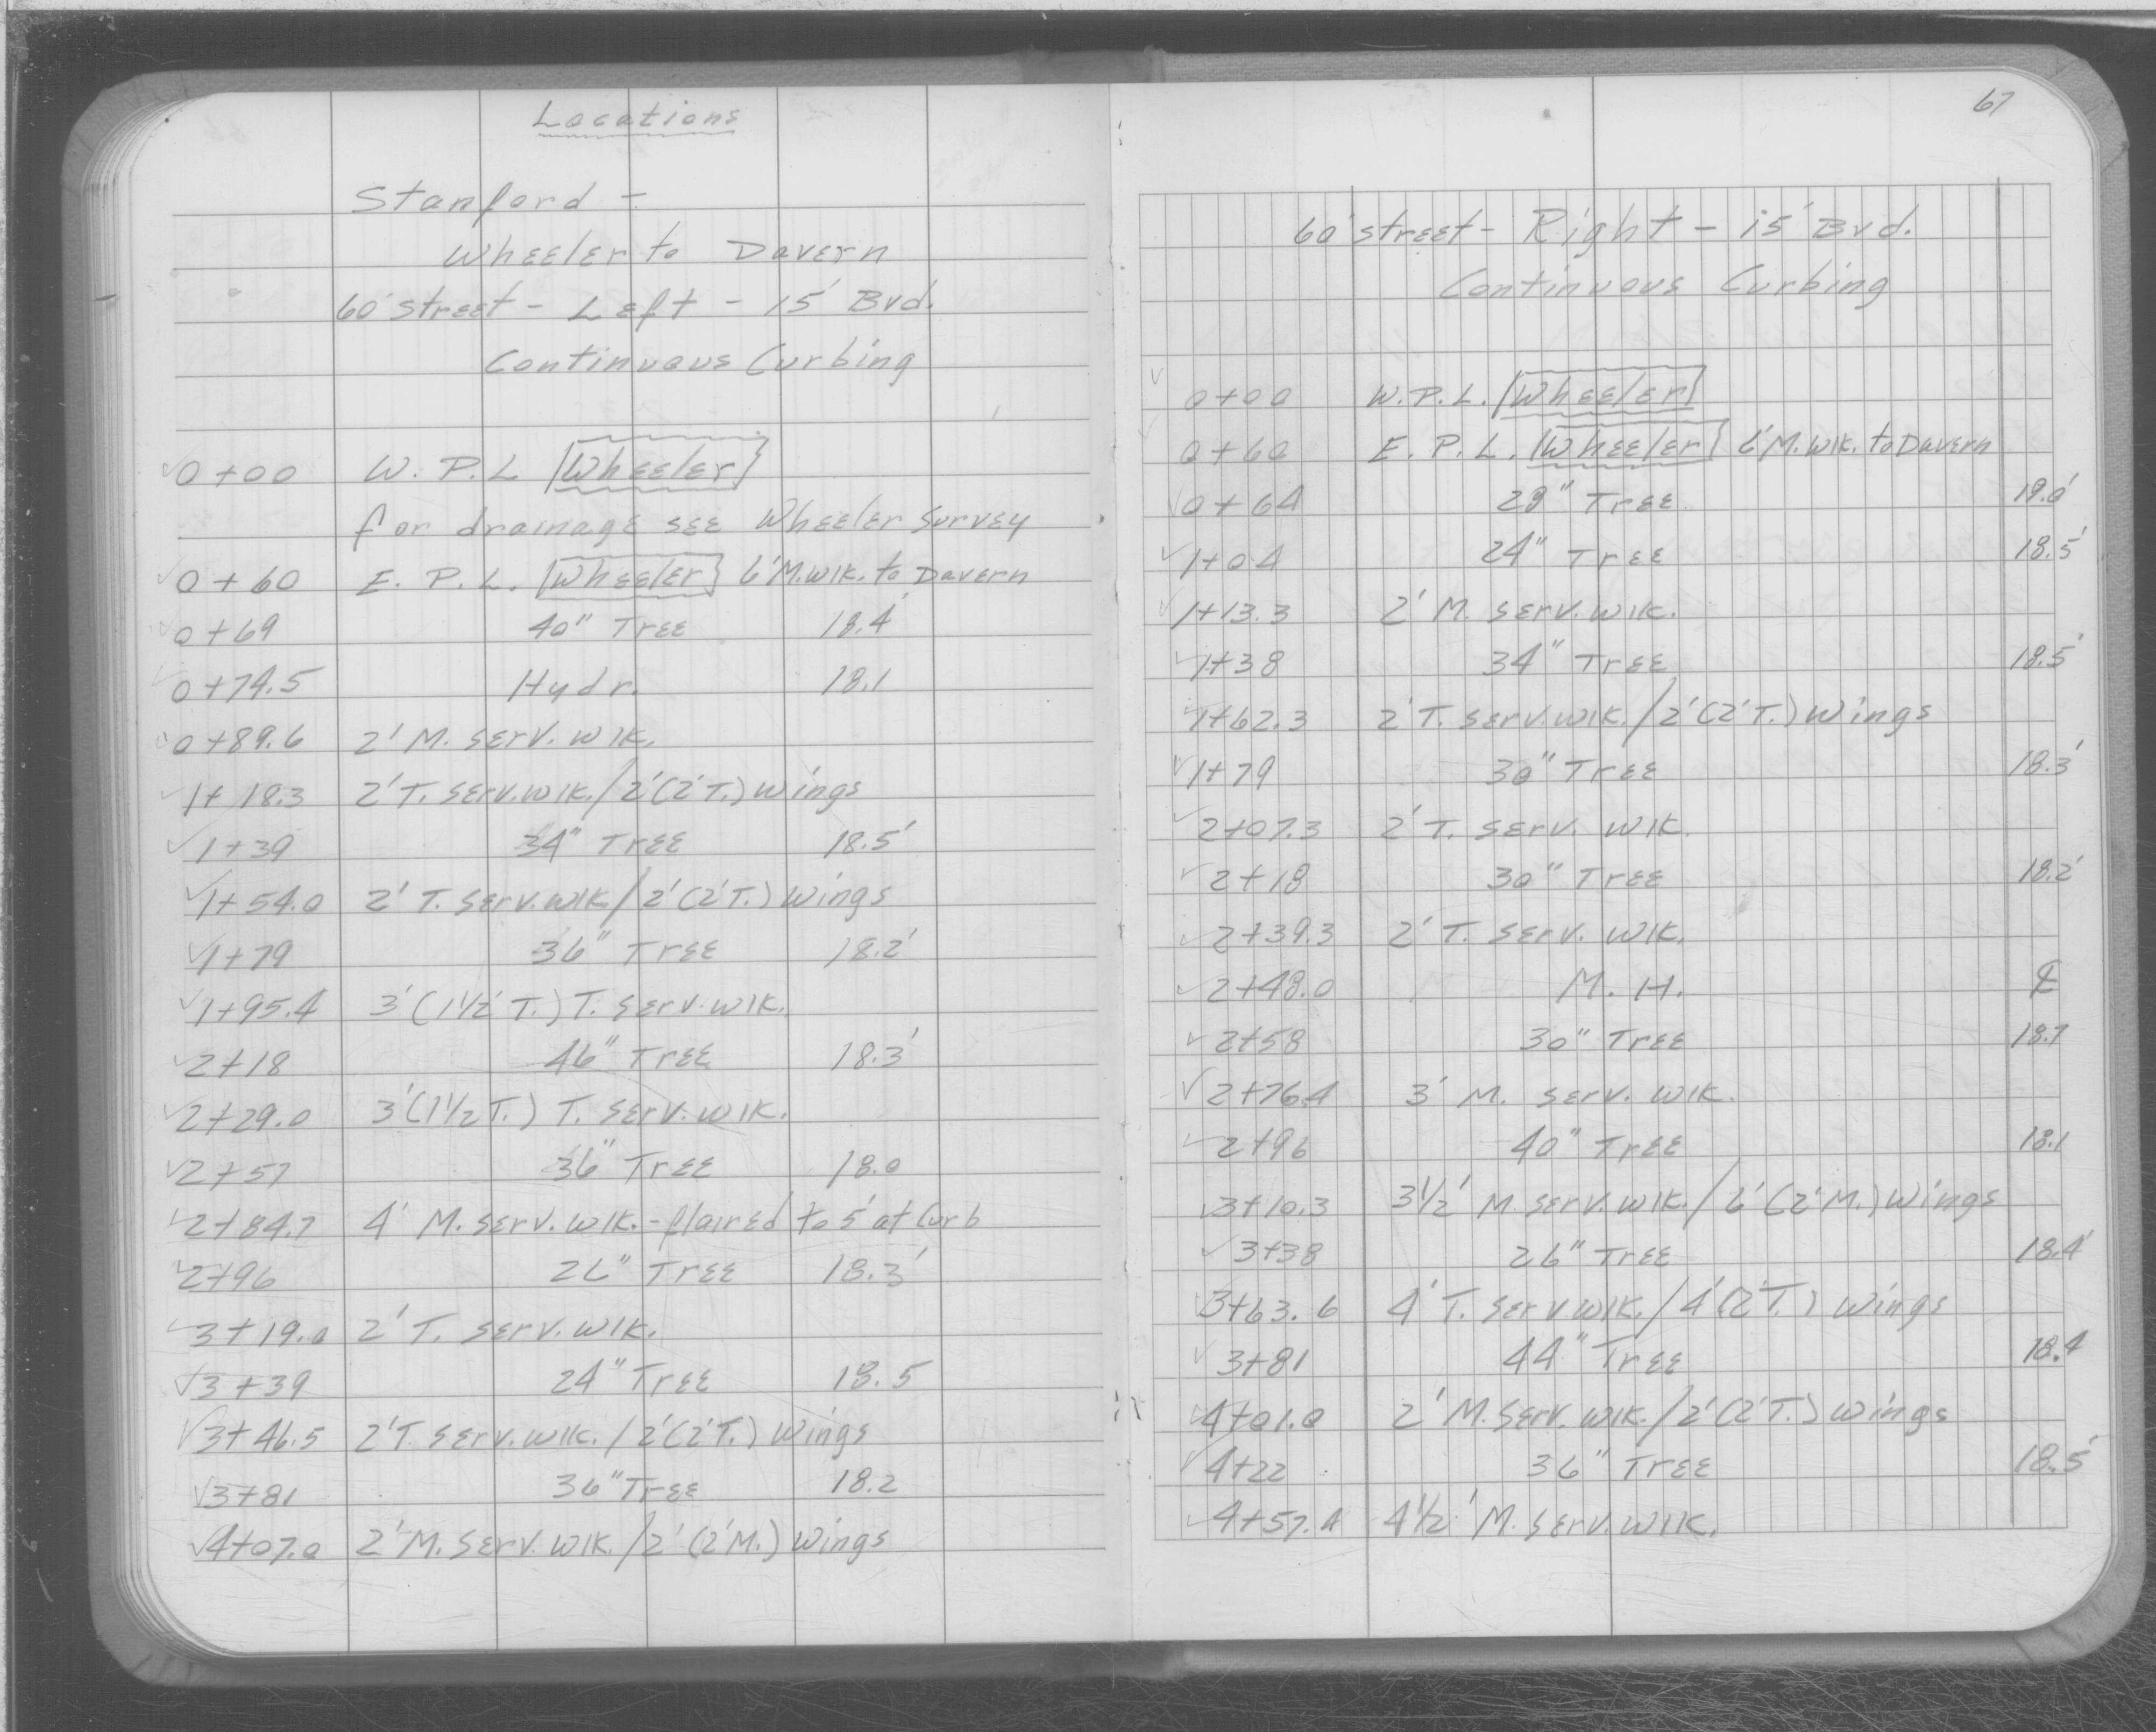 Locations
Stanford -
Wheeler to Davern
60' street - Left - 15' Bvd.
Continuous Curbing
✓ 0+00 W. P. L [Wheeler]
for drainage see Wheeler Survey
✓ 0+60 E. P. L. [Wheeler] 6' M. wlk. to Davern
✓ 0+69 40" Tree 18.4'
✓ 0+74.5 Hydr. 18.1
✓ 0+89.6 2' M. serv. wlk.
✓ 1+18.3 2' T. serv. wlk. / 2' (2' T.) wings
✓ 1+39 34" Tree 18.5'
✓ 1+54.0 2' T. serv. wlk / 2' (2' T.) wings
✓ 1+79 36" Tree 18.2'
✓ 1+95.4 3' (1½' T.) T. serv. wlk.
✓ 2+18 46" Tree 18.3'
✓ 2+29.0 3' (1½ T.) T. serv. wlk.
✓ 2+57 36" Tree 18.0
✓ 2+84.7 4' M. serv. wlk. - flaired to 5' at Curb
✓ 2+96 26" Tree 18.3'
✓ 3+19.0 2' T. serv. wlk.
✓ 3+39 24" Tree 18.5
✓ 3+46.5 2' T. serv. wlk. / 2' (2' T.) wings
✓ 3+81 36" Tree 18.2
✓ 4+07.0 2' M. serv. wlk. / 2' (2' M.) wings
67
60' street - Right - 15' Bvd.
Continuous Curbing
✓ 0+00 W. P. L. [Wheeler]
✓ 0+60 E. P. L. [Wheeler] 6' M. wlk. to Davern
✓ 0+64 28" Tree 19.0'
✓ 1+04 24" Tree 18.5'
✓ 1+13.3 2' M. serv. wlk.
✓ 1+38 34" Tree 18.5'
✓ 1+62.3 2' T. serv. wlk. / 2' (2' T.) wings
✓ 1+79 30" Tree 18.3'
✓ 2+07.3 2' T. serv. wlk.
✓ 2+18 30" Tree 18.2'
✓ 2+39.3 2' T. serv. wlk.
✓ 2+48.0 M. H. ℄
✓ 2+58 30" Tree 18.7
✓ 2+76.4 3' M. serv. wlk.
✓ 2+96 40" Tree 18.1
✓ 3+10.3 3½' M. serv. wlk. / 6' (2' M.) wings
✓ 3+38 26" Tree 18.4'
✓ 3+63.6 4' T. serv wlk. / 4' (2' T.) wings
✓ 3+81 44" Tree 18.4
✓ 4+01.0 2' M. serv. wlk. / 2' (2' T.) wings
✓ 4+22 36" Tree 18.5'
✓ 4+57.4 4½' M. serv. wlk.